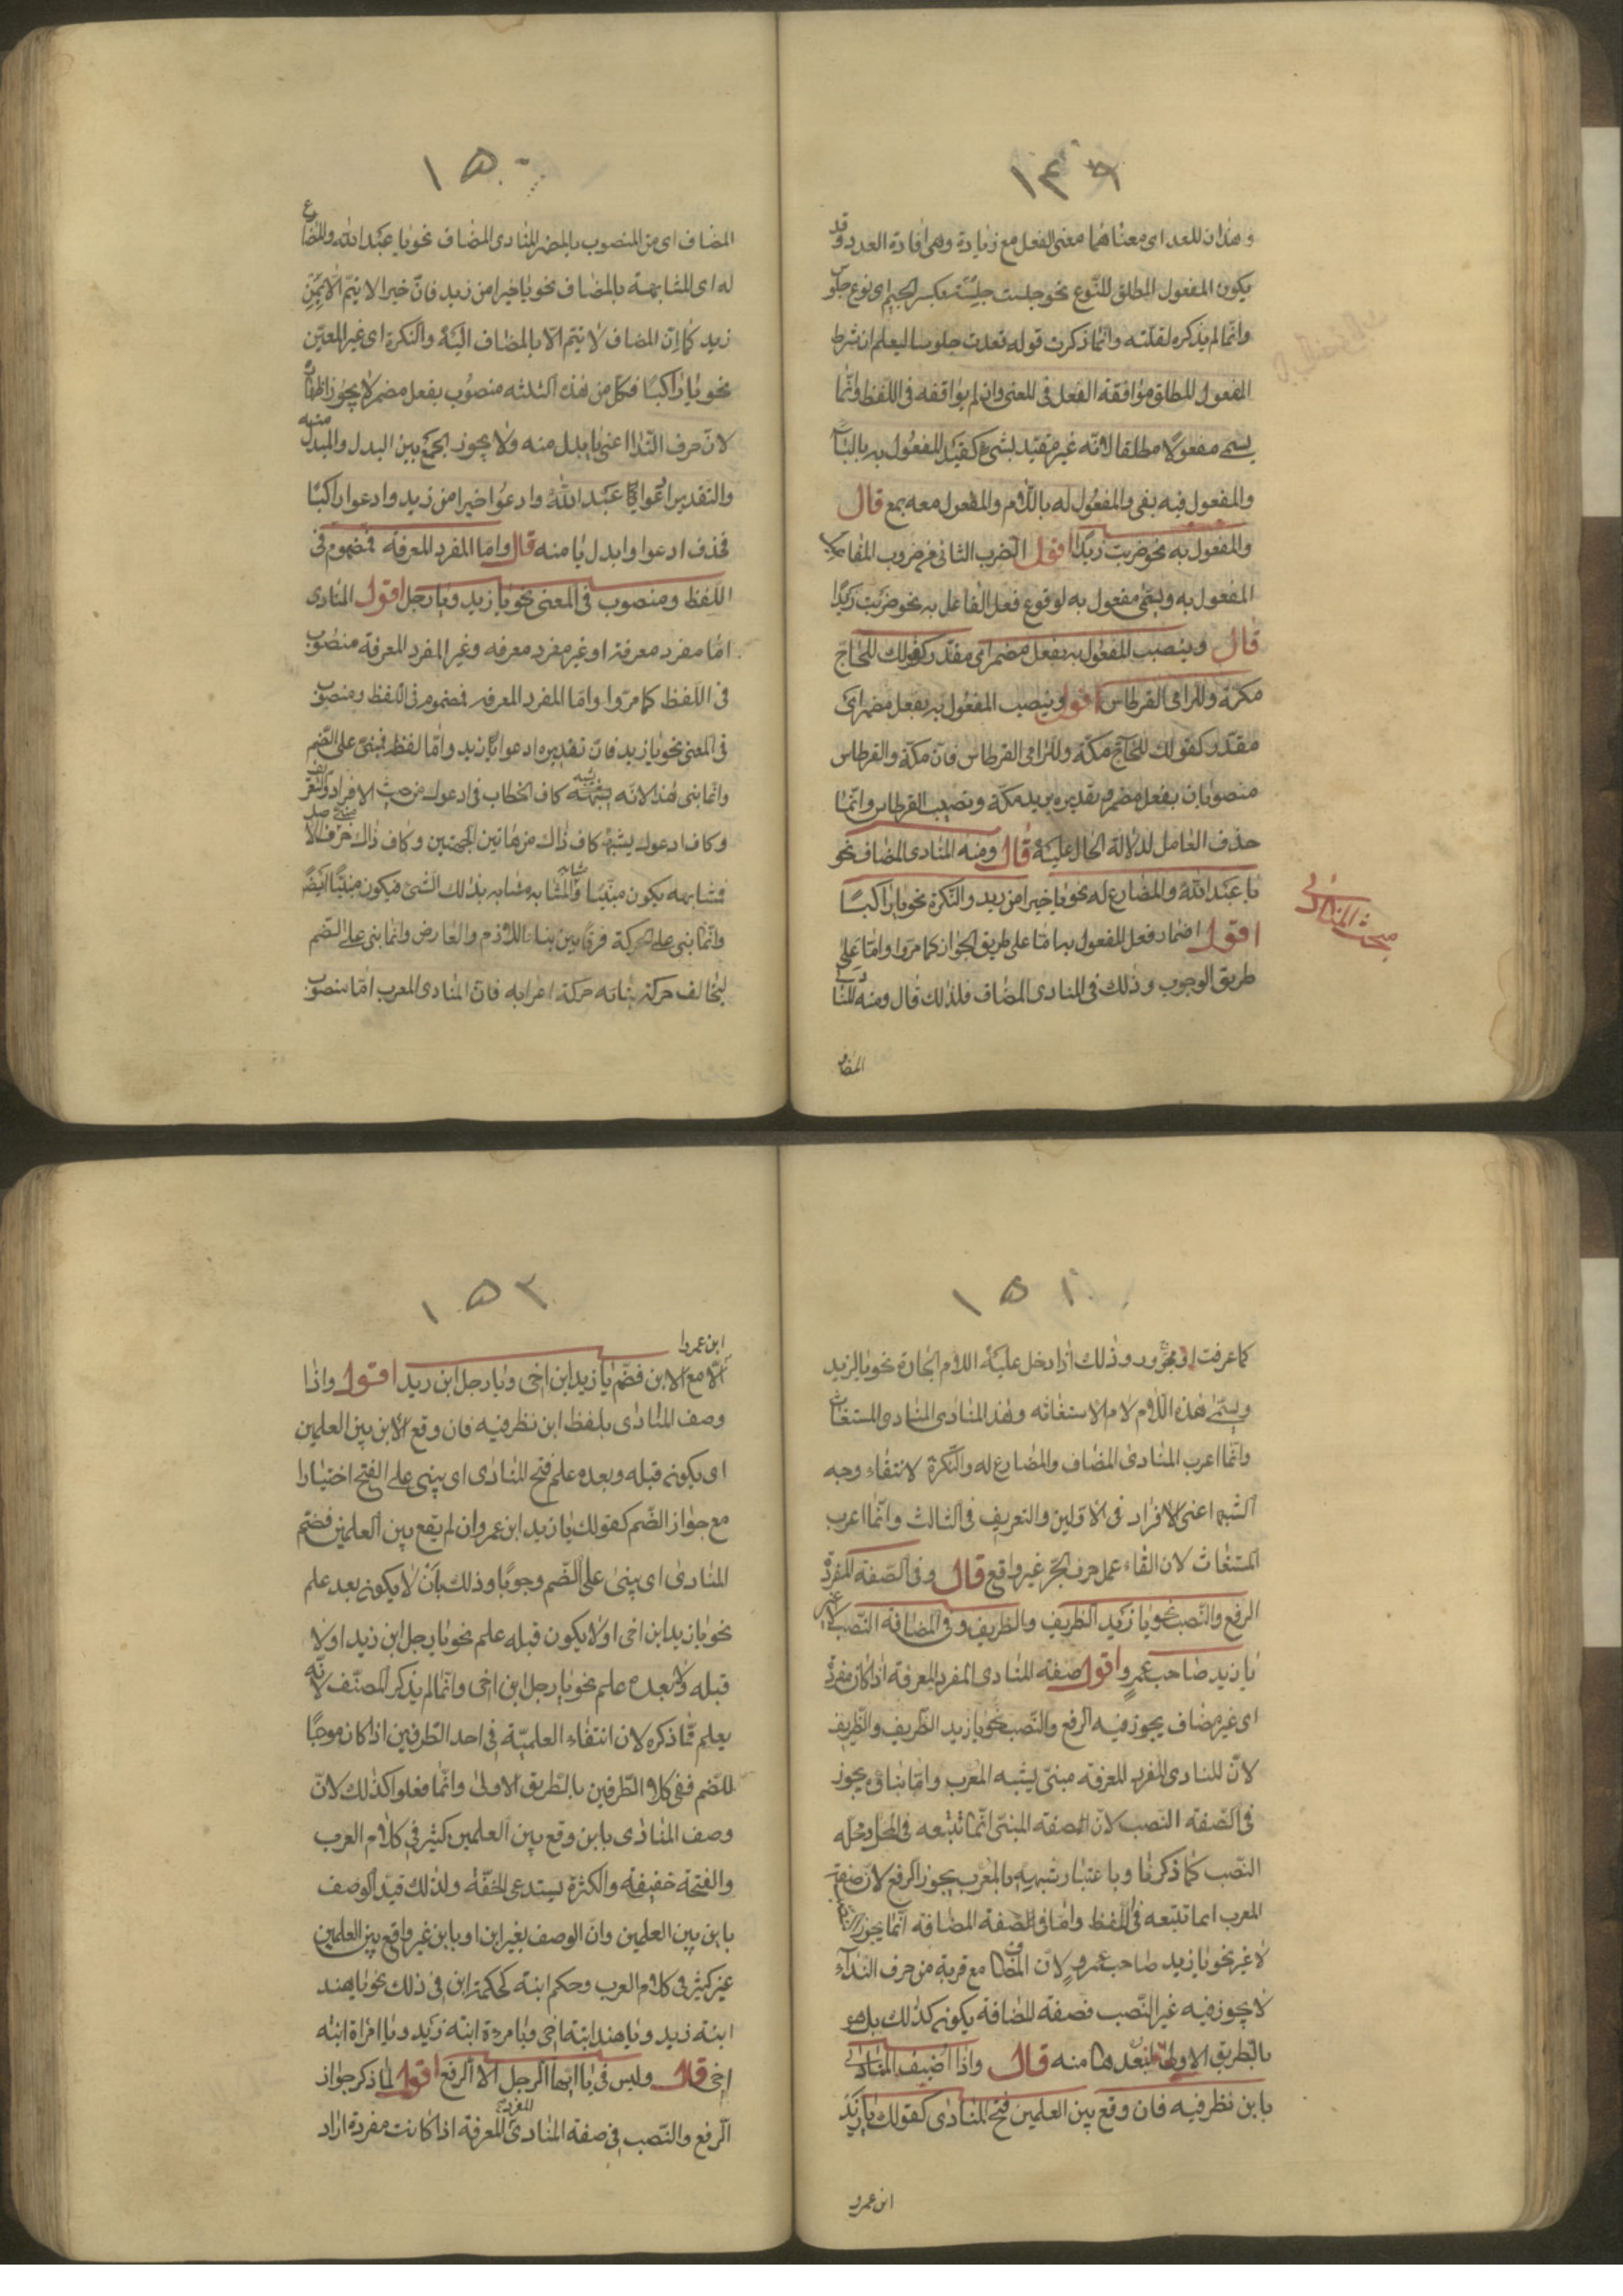 ١٤٩
وهذان للعدد اى معناهما معنى الفعل مع زيادة وهى افادة العدد وقد
يكون المفعول المطلق للنّوع نحو جلست جِلسَة بكسر الجيم اى نوع جلوس
وانّما لم يذكره لقلّته وانّما ذكرت قوله قعدت جلوسا ليعلم ان شرط
المفعول المطلق موافقة الفعل فى المعنى وان لم يوافقه فى اللفظ وانّما
يسمى مفعولًا مطلقا لانّه غير مقيّد بشئ كتقيّد المفعُول به بالباء
والمفعول فيه بفى والمفعُول له باللّام والمفعول معه بمع قال
والمفعول به نحو ضربت زيدًا اقول الضرب الثانى من ضروب المفاعيل
المفعول به وسمّى مفعول به لوقوع فعل الفاعل به نحو ضربت زيدًا
قال وينصب المفعُول به بفعل مضمر اى مقدّر كقولك للحاجّ
مكّة وللرامى القرطاس اقول وينصب المفعُول به بفعل مضمر اى
مقدّر كقولك للحَاجّ مكّة وللرّامى القرطاس فانّ مكّة والقرطاس
منصوبان بفعل مضمر تقديره يريد مكّة وتصيب القرطاس وانّما
حذف العامل لدلالة الحال عليه قال ومنه المنادى المضاف نحو
يا عَبْدَ اللّٰه والمضارع له نحو يا خيرا من زيد والنّكرة نحو يا راكبًا
اقول اضمار فعل المفعول به امّا على طريق الجواز كما مرّوا وامّا على
طريق الوجوب وذلك فى المنادى المضاف فلذلك قال ومنه المنادى
المضاف
مبحث المنادى
١٥٠
المضاف اى من المنصوب بالمضمر المنادى المضاف نحو يا عبْد الله والمضارع
له اى المشابهة بالمضاف نحو يا خيرا من زيد فانّ خيرا لا يتمّ الّا بمن
زيد كما انّ المضاف لا يتم الّا بالمضاف اليه والنّكرة اى غير المعيّن
نحو يا راكبًا فكلّ من هذه الثلثه منصُوب بفعل مضمر لا يجوز اظهاره
لانّ حرف النّدا اعنى يا بدل منه ولا يجوز الجمع بين البدل والمبدل منه
والتقدير ادعوا عَبْد اللّٰه وادعُوا خيرا من زيد وادعوا راكبًا
فحذف ادعوا وابدل يا منه قال وامّا المفرد المعرفة فمضموم فى
اللّفظ ومنصوب فى المعنى نحو يا زيد ويا رجل اقول المنادى
امّا مفرد معرفة او غير مفرد معرفه وغير المفرد المعرفة منصُوب
فى اللّفظ كما مرّوا وامّا المفرد المعرفه فمضموم فى اللّفظ ومنصُوب
فى المعنى نحو يا زيد فانّ تقديره ادعوا زيد وامّا لفظه فمبنىّ على الضّم
وانّما بنى هذا لانّه يشبه كاف الخطاب فى ادعوك من حيث الافراد والتعريف
وكاف ادعوك يشبه كاف ذاك من هاتين الجهتين وكاف ذاك حرف لا
فمشابهه يكون مبنيّا والمشابه مشابه بذلك الشئ فيكون مبنيًّا ايضًا
وانّما بنى على الحركة فرقا بين بناء اللازم والعارض وانما بنى على الضّم
ليخالف حركة بنائه حركة اعرابه فانّ المنادى المعرب امّا منصُوب
١٥١
كما عرفت او مجرور وذلك اذا دخل عليه اللام الجارة نحو يا لزيد
ويسمّى هذه اللّام لام الاستغاثه وهذا المنادى المنادى المستغاث
وانّما اعرب المنادى المضاف والمضارع له والنّكرة لانتفاء وجه
الشّبه اعنى الافراد فى الاوّلين والتعريف فى الثالث وانّما اعرب
المستغاث لان القاء عمل حرف الجّر غير واقع قال وفى الصّفه المفردة
الرفع والنّصب نحو يا زيد الظّريف والظريف وفى المضافة النّصب لا غير
يا زيد صاحب عمرٍو اقول صفة المنادى المفرد المعرفة اذا كان مفردة
اى غير مضاف يجوز فيه الرفع والنّصب نحو يا زيد الظّريف والظّريف
لانّ المنادى المفرد المعرفه مبنىّ يشبه المعرب وامّا بناؤه يجوز
فى الصّفه النّصب لانّ صفه المبنىّ انّما تتبعه فى المحل ومحلّه
النّصب كما ذكرنا وباعتبار شبهيه بالمعرب يجوز الرفع لان صفة
المعرب انما تتبعه فى اللّفظ وامّا فى الصّفه المضافه انّما يجوز النصب
لا غير نحو يا زيد صاحب عمرو لانّ المضاف مع قربه من حرف النّداء
لا يجوز فيه غير النّصب فصفه المضافة يكون كذلك بل هو
بالطّريق الاولى لبعدها منه قال واذا اضيف المنادى
بابن نظر فيه فان وقع بين العلمين فتح المنادى كقولك يا زيد
ابن عمرو
١٥٢
ابن عمروا
الّا مع الابن فضّم يا زيد ابن اخى ويا رجل ابن زيد اقول واذا
وصف المنادى بلفظ ابن نظر فيه فان وقع الابن بين العلمين
اى يكون قبله وبعده علم فتح المنادى اى يبنى على الفتح اختيارا
مع جواز الضّم كقولك يا زيد ابن عمرو وان لم يقع بين العلمين فضّم
المنادى اى يبنى على الضّم وجوبًا وذلك بان لا يكون بعد علم
نحو يا زيد ابن اخى او لا يكون قبله علم نحو يا رجل ابن زيد او لا
قبله ولا بعده علم نحو يا رجل ابن اخى وانّما لم يذكر المصنّف لانّه
يعلم ممّا ذكره لان انتفاء العلميّة فى احد الطّرفين اذا كان موجبًا
للضّم ففى كلا الطّرفين بالطّريق الاولى وانّما فعلوا كذلك لانّ
وصف المنادى بابن وقع بين العلمين كثير فى كلام العرب
والفتحة خفيفة والكثرة يستدعى الخفّة ولذلك قيّد الوصف
بابن بين العلمين وانّ الوصف بغير ابن او بابن غير واقع بين العلمين
غير كثير فى كلام العرب وحكم ابنة كحكم ابن فى ذلك نحو يا هند
ابنة زيد ويا هند ابنة اخى ويا مرءة ابنة زيد ويا امرأة ابنة
اخى قال وليس فى يا ايّها الرجل الا الرفع اقول لما ذكر جواز
الرّفع والنّصب فى صفة المنادى المفرد المعرفة اذا كانت مفردة اراد